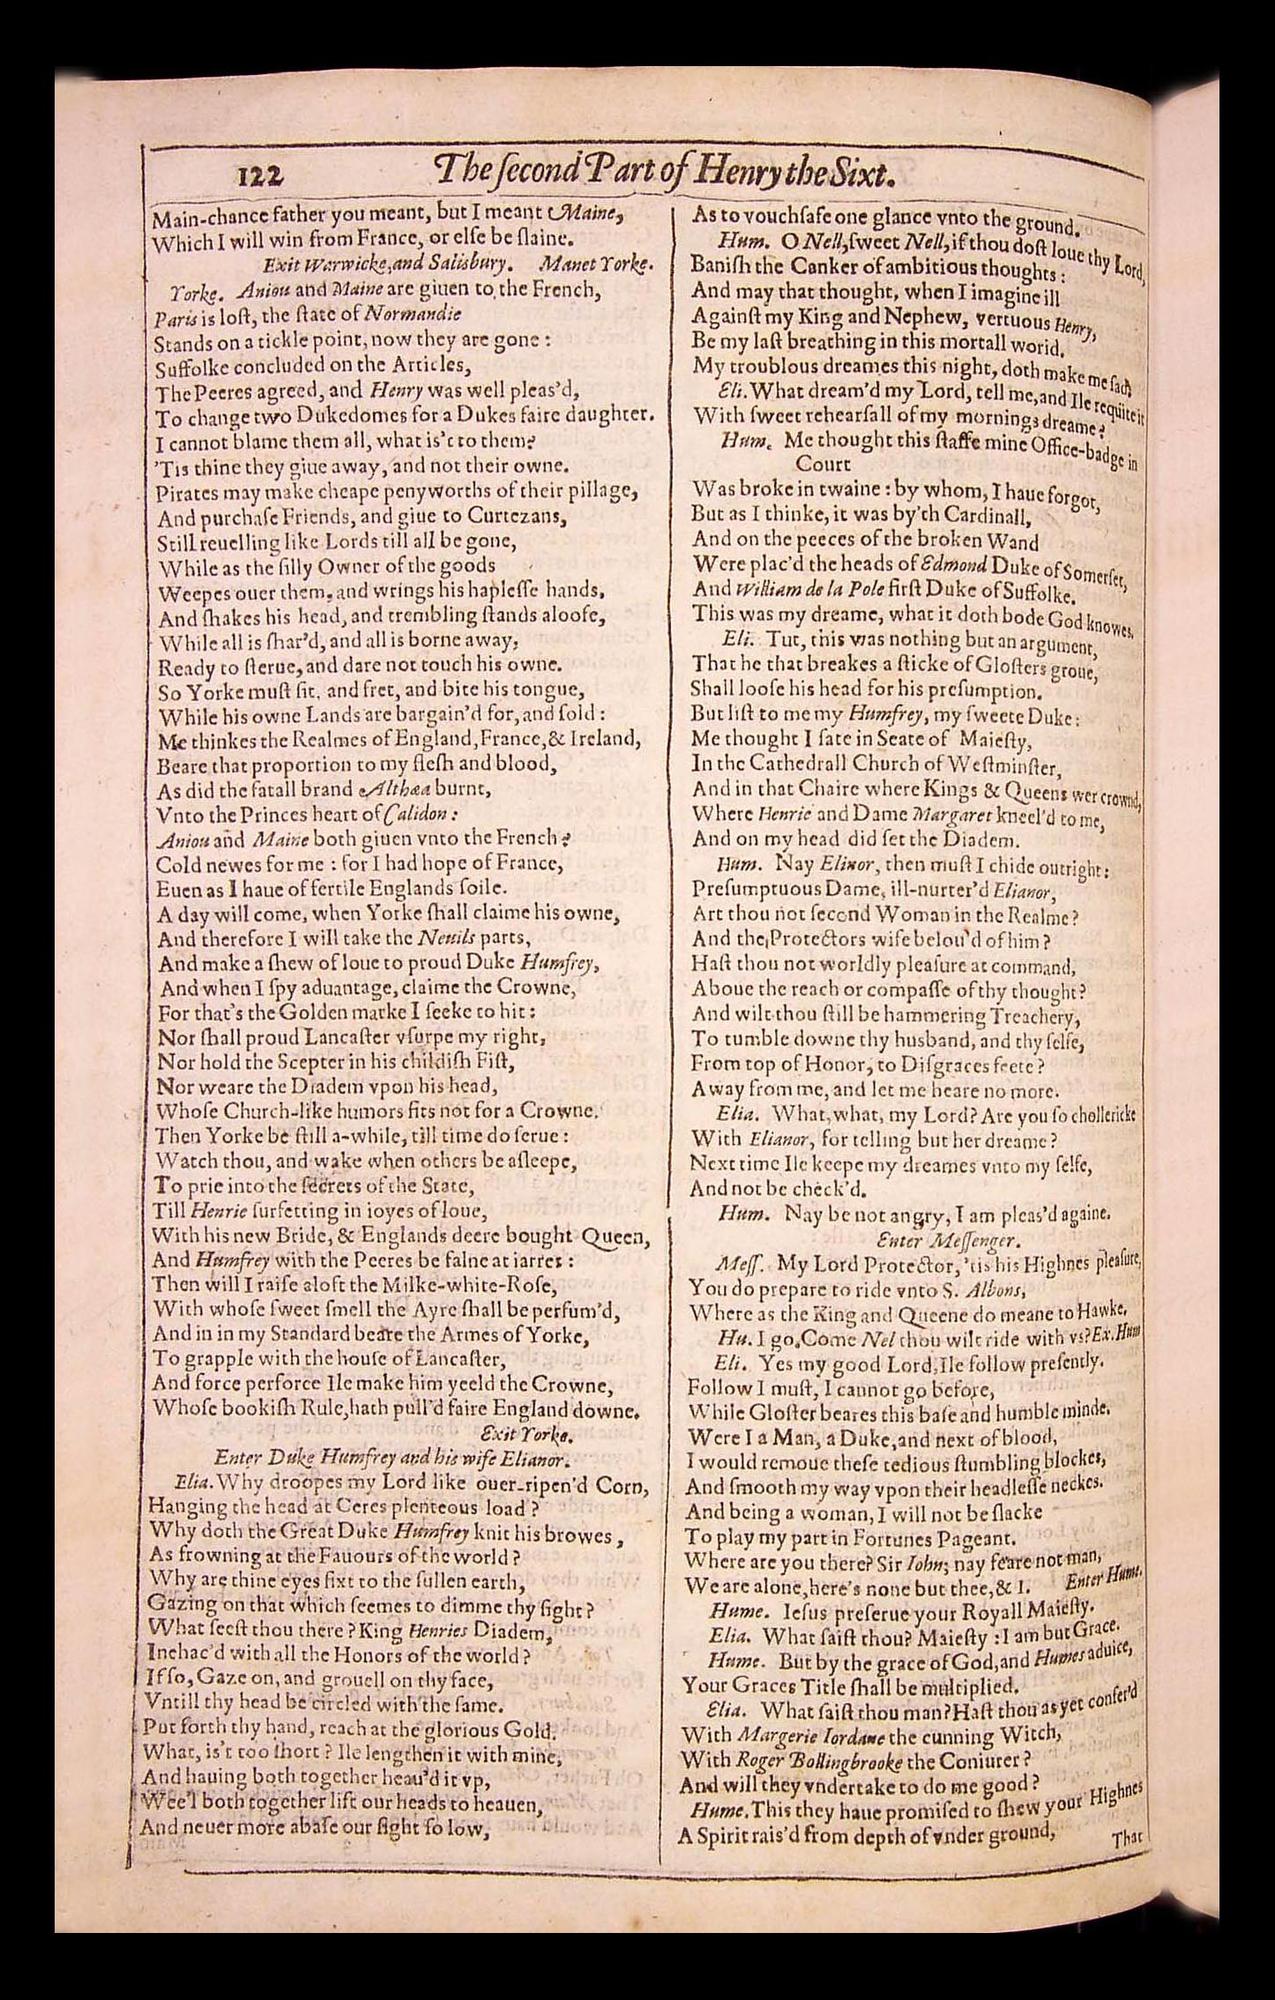 122
The ſecond Part of Henry the Sixt.
Main-chance father you meant, but I meant Maine,
Which I will win from France, or elſe be ſlaine.
Exit Warwicke,and Salisbury. Manet Yorke.
Yorke. Aniou and Maine are giuen to the French,
Paris is loſt, the ſtate of Normandie
Stands on a tickle point, now they are gone :
Suffolke concluded on the Articles,
The Peeres agreed, and Henry was well pleas'd,
To change two Dukedomes for a Dukes faire daughter.
I cannot blame them all, what is't to them?
'Tis thine they giue away, and not their owne.
Pirates may make cheape penyworths of their pillage,
And purchaſe Friends, and giue to Curtezans,
Still reuelling like Lords till all be gone,
While as the ſilly Owner of the goods
Weepes ouer them, and wrings his hapleſſe hands,
And ſhakes his head, and trembling ſtands aloofe,
While all is ſhar'd, and all is borne away,
Ready to ſterue, and dare not touch his owne.
So Yorke muſt ſit, and fret, and bite his tongue,
While his owne Lands are bargain'd for, and ſold :
Me thinkes the Realmes of England,France,& Ireland,
Beare that proportion to my fleſh and blood,
As did the fatall brand Althæa burnt,
Vnto the Princes heart of Calidon :
Aniou and Maine both giuen vnto the French ?
Cold newes for me : for I had hope of France,
Euen as I haue of fertile Englands ſoile.
A day will come, when Yorke ſhall claime his owne,
And therefore I will take the Neuils parts,
And make a ſhew of loue to proud Duke Humfrey,
And when I ſpy aduantage, claime the Crowne,
For that's the Golden marke I ſeeke to hit :
Nor ſhall proud Lancaſter vſurpe my right,
Nor hold the Scepter in his childiſh Fiſt,
Nor weare the Diadem vpon his head,
Whoſe Church-like humors fits not for a Crowne.
Then Yorke be ſtill a-while, till time do ſerue :
Watch thou, and wake when others be aſleepe,
To prie into the ſecrets of the State,
Till Henrie ſurfetting in ioyes of loue,
With his new Bride, & Englands deere bought Queen,
And Humfrey with the Peeres be falne at iarres :
Then will I raiſe aloft the Milke-white-Roſe,
With whoſe ſweet ſmell the Ayre ſhall be perfum'd,
And in in my Standard beare the Armes of Yorke,
To grapple with the houſe of Lancaſter,
And force perforce Ile make him yeeld the Crowne,
Whoſe bookiſh Rule,hath pull'd faire England downe.
Exit Yorke.
Enter Duke Humfrey and his wife Elianor.
Elia. Why droopes my Lord like ouer-ripen'd Corn,
Hanging the head at Ceres plenteous load ?
Why doth the Great Duke Humfrey knit his browes ,
As frowning at the Fauours of the world ?
Why are thine eyes fixt to the ſullen earth,
Gazing on that which ſeemes to dimme thy ſight ?
What ſeeſt thou there ? King Henries Diadem,
Inchac'd with all the Honors of the world ?
If ſo, Gaze on, and grouell on thy face,
Vntill thy head be circled with the ſame.
Put forth thy hand, reach at the glorious Gold.
What, is't too ſhort ? Ile lengthen it with mine,
And hauing both together heau'd it vp,
Wee'l both together lift our heads to heauen,
And neuer more abaſe our ſight ſo low,
As to vouchſafe one glance vnto the ground.
Hum. O Nell,ſweet Nell, if thou doſt loue thy Lord,
Baniſh the Canker of ambitious thoughts :
And may that thought, when I imagine ill
Againſt my King and Nephew, vertuous Henry,
Be my laſt breathing in this mortall world.
My troublous dreames this night, doth make me ſad,
Eli. What dream'd my Lord, tell me,and Ile requite it
With ſweet rehearſall of my mornings dreame ?
Hum. Me thought this ſtaffe mine Office-badge in
Court
Was broke in twaine : by whom, I haue forgot,
But as I thinke, it was by'th Cardinall,
And on the peeces of the broken Wand
Were plac'd the heads of Edmond Duke of Somerſet,
And William de la Pole firſt Duke of Suffolke.
This was my dreame, what it doth bode God knowes.
Eli. Tut, this was nothing but an argument,
That he that breakes a ſticke of Gloſters groue,
Shall looſe his head for his preſumption.
But liſt to me my Humfrey, my ſweete Duke :
Me thought I ſate in Seate of Maieſty,
In the Cathedrall Church of Weſtminſter,
And in that Chaire where Kings & Queens wer crownd,
Where Henrie and Dame Margaret kneel'd to me,
And on my head did ſet the Diadem.
Hum. Nay Elinor, then muſt I chide outright :
Preſumptuous Dame, ill-nurter'd Elianor,
Art thou not ſecond Woman in the Realme ?
And the Protectors wife belou'd of him ?
Haſt thou not worldly pleaſure at command,
Aboue the reach or compaſſe of thy thought ?
And wilt thou ſtill be hammering Treachery,
To tumble downe thy husband, and thy ſelfe,
From top of Honor, to Diſgraces feete ?
Away from me, and let me heare no more.
Elia. What, what, my Lord? Are you ſo chollericke
With Elianor, for telling but her dreame ?
Next time Ile keepe my dreames vnto my ſelfe,
And not be check'd.
Hum. Nay be not angry, I am pleas'd againe.
Enter Meſſenger.
Meſſ. My Lord Protector, 'tis his Highnes pleaſure,
You do prepare to ride vnto S. Albons,
Where as the King and Queene do meane to Hawke.
Hu. I go.Come Nel thou wilt ride with vs?Ex. Hum
Eli. Yes my good Lord,Ile follow preſently.
Follow I muſt, I cannot go before,
While Gloſter beares this baſe and humble minde.
Were I a Man, a Duke,and next of blood,
I would remoue theſe tedious ſtumbling blockes,
And ſmooth my way vpon their headleſſe neckes.
And being a woman, I will not be ſlacke
To play my part in Fortunes Pageant.
Where are you there? Sir Iohn; nay feare not man,
We are alone,here's none but thee,& I. Enter Hume.
Hume. Ieſus preſerue your Royall Maieſty.
Elia. What ſaiſt thou? Maieſty : I am but Grace.
Hume. But by the grace of God,and Humes aduice,
Your Graces Title ſhall be multiplied.
Elia. What ſaiſt thou man?Haſt thou as yet confer'd
With Margerie Iordane the cunning Witch,
With Roger Bollingbrooke the Coniurer ?
And will they vndertake to do me good ?
Hume.This they haue promiſed to ſhew your Highnes
A Spirit rais'd from depth of vnder ground,
That